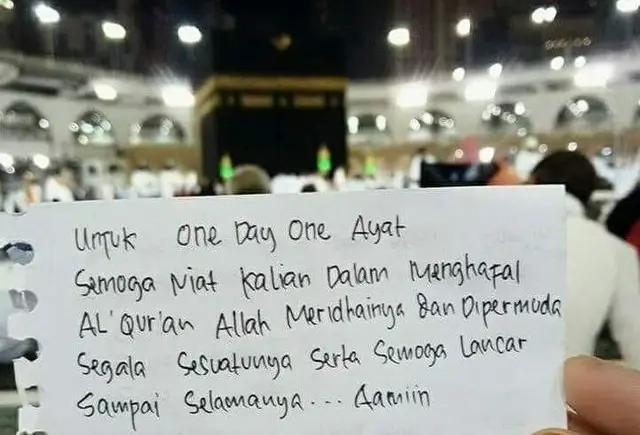 Untuk One Day One Ayat
Semoga Niat Kalian Dalam Menghafal
AL'Qur'an Allah Meridhainya Dan Dipermuda
Segala Sesuatunya Serta Semoga Lancar
Sampai Selamanya... Aamiin